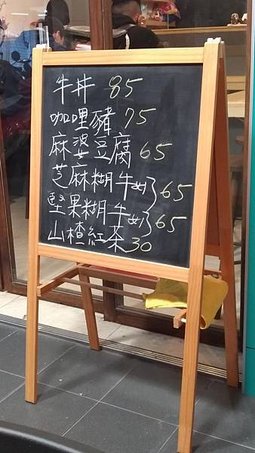 牛丼 85
咖哩豬 75
麻婆豆腐 65
芝麻糊牛奶 65
堅果糊牛奶 65
山楂紅茶 30